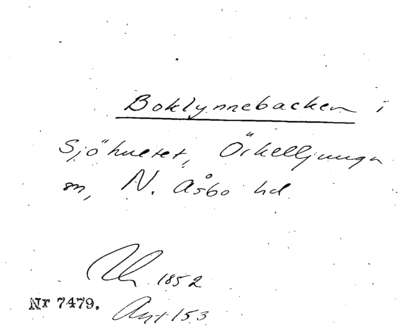 Boklynnebacken i
Sjöhuetet, Örkelljunga
sn, N. Åsbo hd
1852
Nr 7479.
153